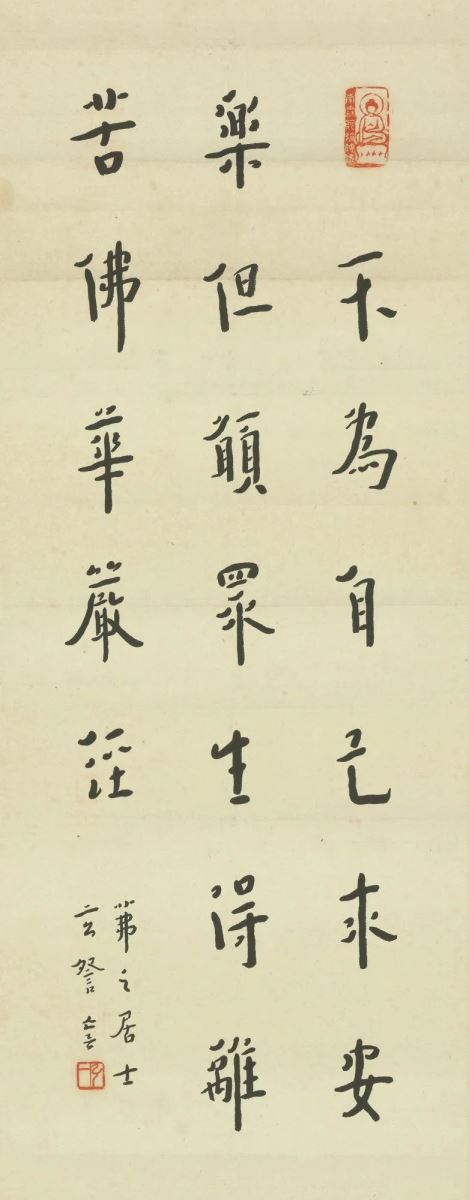 不為自己求安
樂但願眾生得離
苦佛華嚴經
茀之居士
玄䇓書